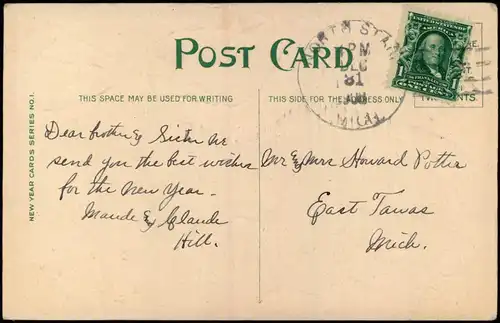 POST CARD
NORTH STAR
PM
DEC
31
MICH.
THIS SPACE MAY BE USED FOR WRITING
THIS SIDE FOR THE ADDRESS ONLY
NEW YEAR CARDS SERIES NO. 1.
Dear brother & Sister we
send you the best wishes
for the New Year.
Maude & Claude
Hill.
Mr & Mrs Howard Potter
East Tawas
Mich.